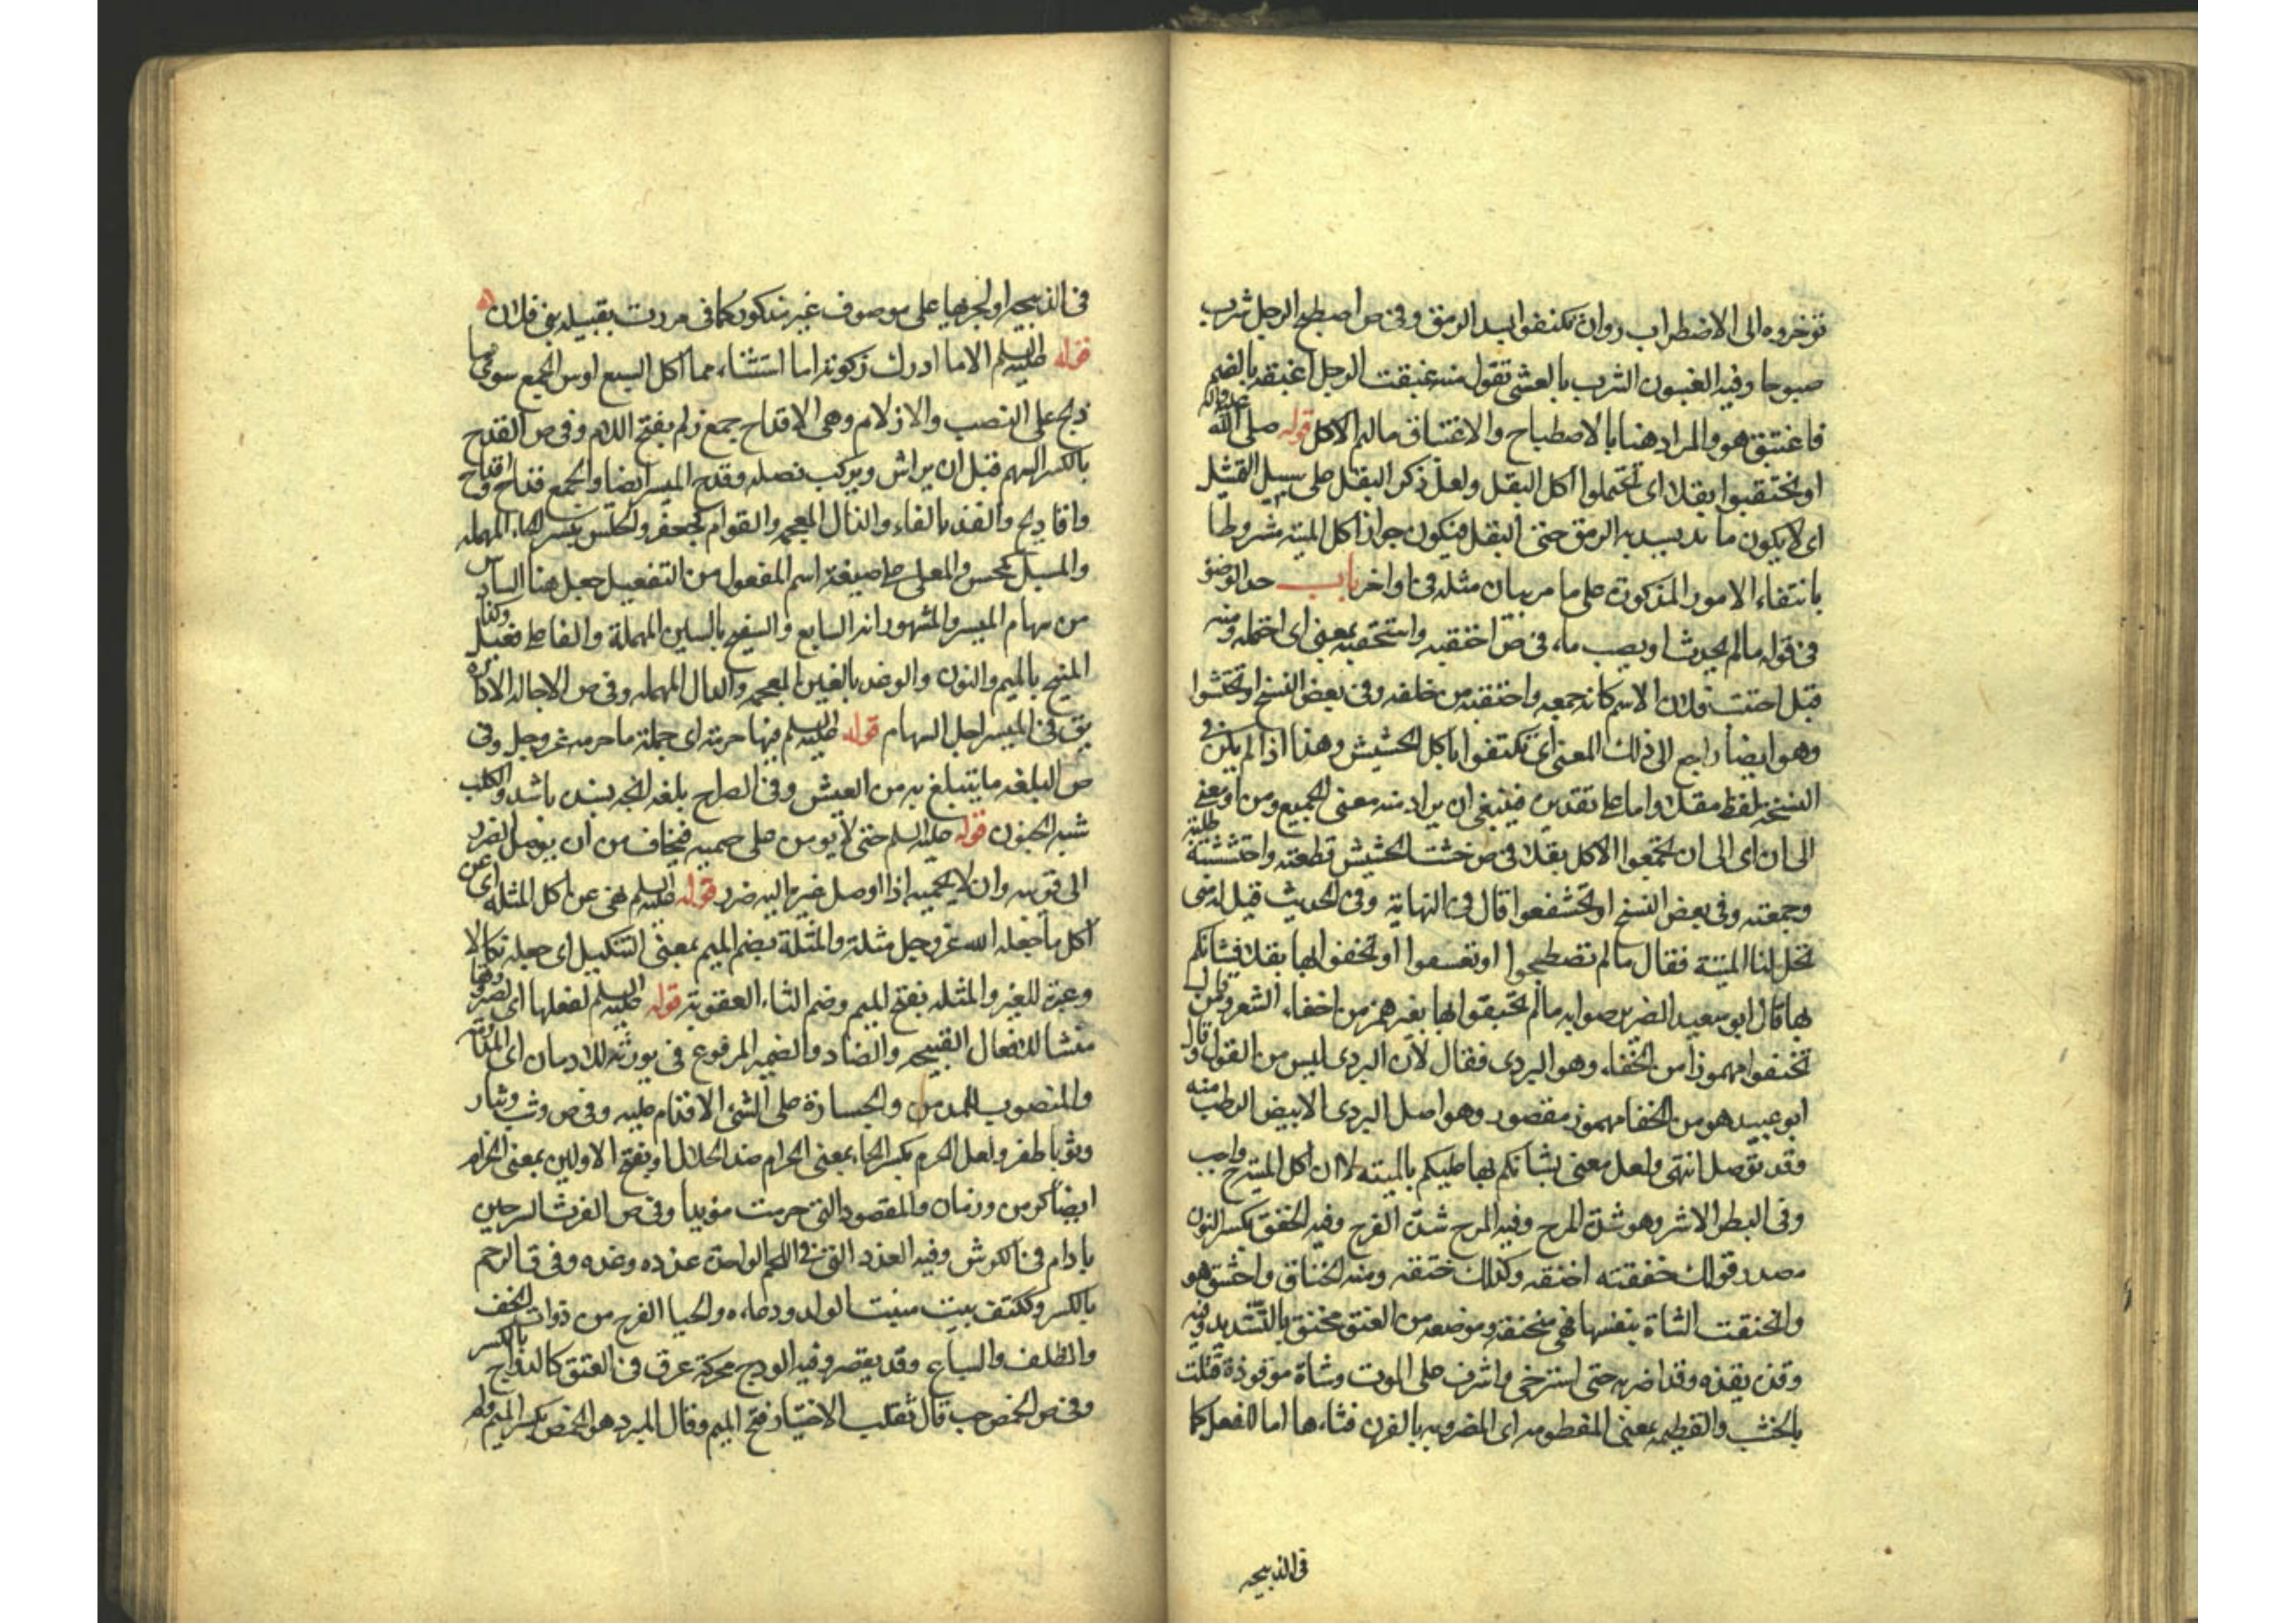 تؤخروه الى الاضطراب وان تكتفوا بسد الرمق وفى ص اصطبح الرجل شرب
صبوحا وفيه الغبوق الشرب بالعشى تقول منه غبقت الرجل اغبقه بالضم
فاغتبق هو والمراد هنا بالاصطباح والاغتباق مالهم الاكل قوله صلى الله عليه واله
او تحتقبوا بقلا اى تحتملوا اكل البقل ولعل ذكر البقل على سبيل التمثيل
اى لا يكون ما يسد به الرمق حتى البقل فيكون جواز اكل الميتة مشروطا
بانتفاء الامور المذكورة على ما مر بيان مثله فى اواخر باب حد الوضوء
فى قوله ما لم يحدث او يصب ماء فى ص احتقبه واستحقبه بمعنى اى احتمله ومنه
قيل احتقب فلان الاثم كانه جمعه واحتقبه من خلفه وفى بعض النسخ او تحتشوا
وهو ايضا راجع الى ذلك المعنى اى تكتفوا باكل الحشيش وهذا اذا لم يكن فى
النسخة لفظ بقلا واما على تقديره فينبغى ان يراد منه معنى الجميع ومن او معنى
الى ان اى الى ان تجمعوا الاكل بقلا فى ص حششت الحشيش قطعته واحتششته طلبته
وجمعته وفى بعض النسخ او تحتشفوا قال فى النهاية وفى الحديث قيل له متى
تحل لنا الميتة فقال ما لم تصطبحوا او تغتبقوا او تحتفئوا بها بقلا فشانكم
بها قال ابو سعيد الضرير صوابه ما لم تحتفوا بها بغير همز من احفاء الشعر ومن قال
تحتفئوا مهموزا من الحفاء وهو البردى فقال لان البردى ليس من البقول وقال
ابو عبيد هو من الحفا مهموز مقصور وهو اصل البردى الابيض الرطب منه
وقد يؤكل انتهى ولعل معنى بشانكم بها عليكم بالميتة لا ان اكل الميتة واجب
وفى البطر الاشر وهو شدة المرح وفيه المرح شدة الفرح وفيه الخنق بكسر النون
مصدر قولك خنقته اخنقه وكذلك خنقه ومنه الخناق واختنق هو
وانخنقت الشاة بنفسها فهى منخنقة وموضعه من العنق مخنق بالتشديد وفيه
وقذه يقذه وقذا ضربه حتى استرخى واشرف على الموت وشاة موقوذة قتلت
بالخشب والنطيحة بمعنى المنطوحة اى المضروبه بالقرن فتاءها اما للنقل كما
فى الذبيحه
فى الذبيحه او لجريها على موصوف غير مذكور كما فى مررت بقبيلة بنى فلان
قوله عليه السلم الا ما ادركت ذكوته اما استثناء مما اكل السبع او من الجميع سوى ما
ذبح على النصب والازلام وهى الاقداح جمع زلم بفتح اللام وفى ص القدح
بالكسر السهم قبل ان يراش ويركب نصله وقدح الميسر ايضا والجمع قداح واقداح
واقاديح والفذ بالفاء والذال المعجمه والتوام كجعفر والحلس بكسر الحاء المهمله
والمسبل كمحسن والمعلى على صيغة اسم المفعول من التفعيل جعل هنا السادس
من سهام الميسر والمشهور انه السابع والسفيح بالسين المهملة والفاء على فعيل وكذا
المنيح بالميم والنون والوغد بالغين المعجمه والدال المهمله وفى ص الاجالة الادارة
يق فى الميسر اجل السهام قوله عليه السلم فيها حرمته اى جملة ما حرمه عز وجل وفى
ص البلغه ما يتبلغ به من العيش وفى الصراح بلغه انچه بسنده باشد والكلب
شبه الجنون قوله عليه السلم حتى لا يؤمن على حميمه فيخاف من ان يوصل الضرر
الى قريبه وان لا يحميه اذا اوصل غيره اليه ضرر قوله عليه السلم نهى عن اكل المثلة اى عن
اكل ما جعله الله عز وجل مثلة والمثلة بضم الميم بمعنى التنكيل اى جعله نكالا
وعبرة للغير والمثله بفتح الميم وضم الثاء العقوبة قوله عليه السلم لفعلها اى لضررها
منشا للافعال القبيحه والضاد والضمير المرفوع فى يورثه للادمان اى
والمنصوب للمدمن والجسارة على الشئ الاقدام عليه وفى ص وثب وثبا
وثوبا طفر ولعل الحرم بكسر الحاء بمعنى الحرام ضد الحلال او بفتح الاولين بمعنى الحرام
ايضا كزمن وزمان والمقصود التى حرمت مؤبدا وفى ص الفرث السرجين
ما دام فى الكرش وفيه الغدد التى فى اللحم الواحدة غدده وغده وفى ق الرحم
بالكسر وككتف بيت منبت الولد ووعاءه والحيا الفرج من ذوات الخف
والظلف والسباع وقد يقصر وفيه الودج محركة عرق فى العنق كالوداج بالكسر
وفى ص الحمص حب قال ثعلب الاختيار فتح الميم وقال المبرد هو الحمص بكسر الميم ولم